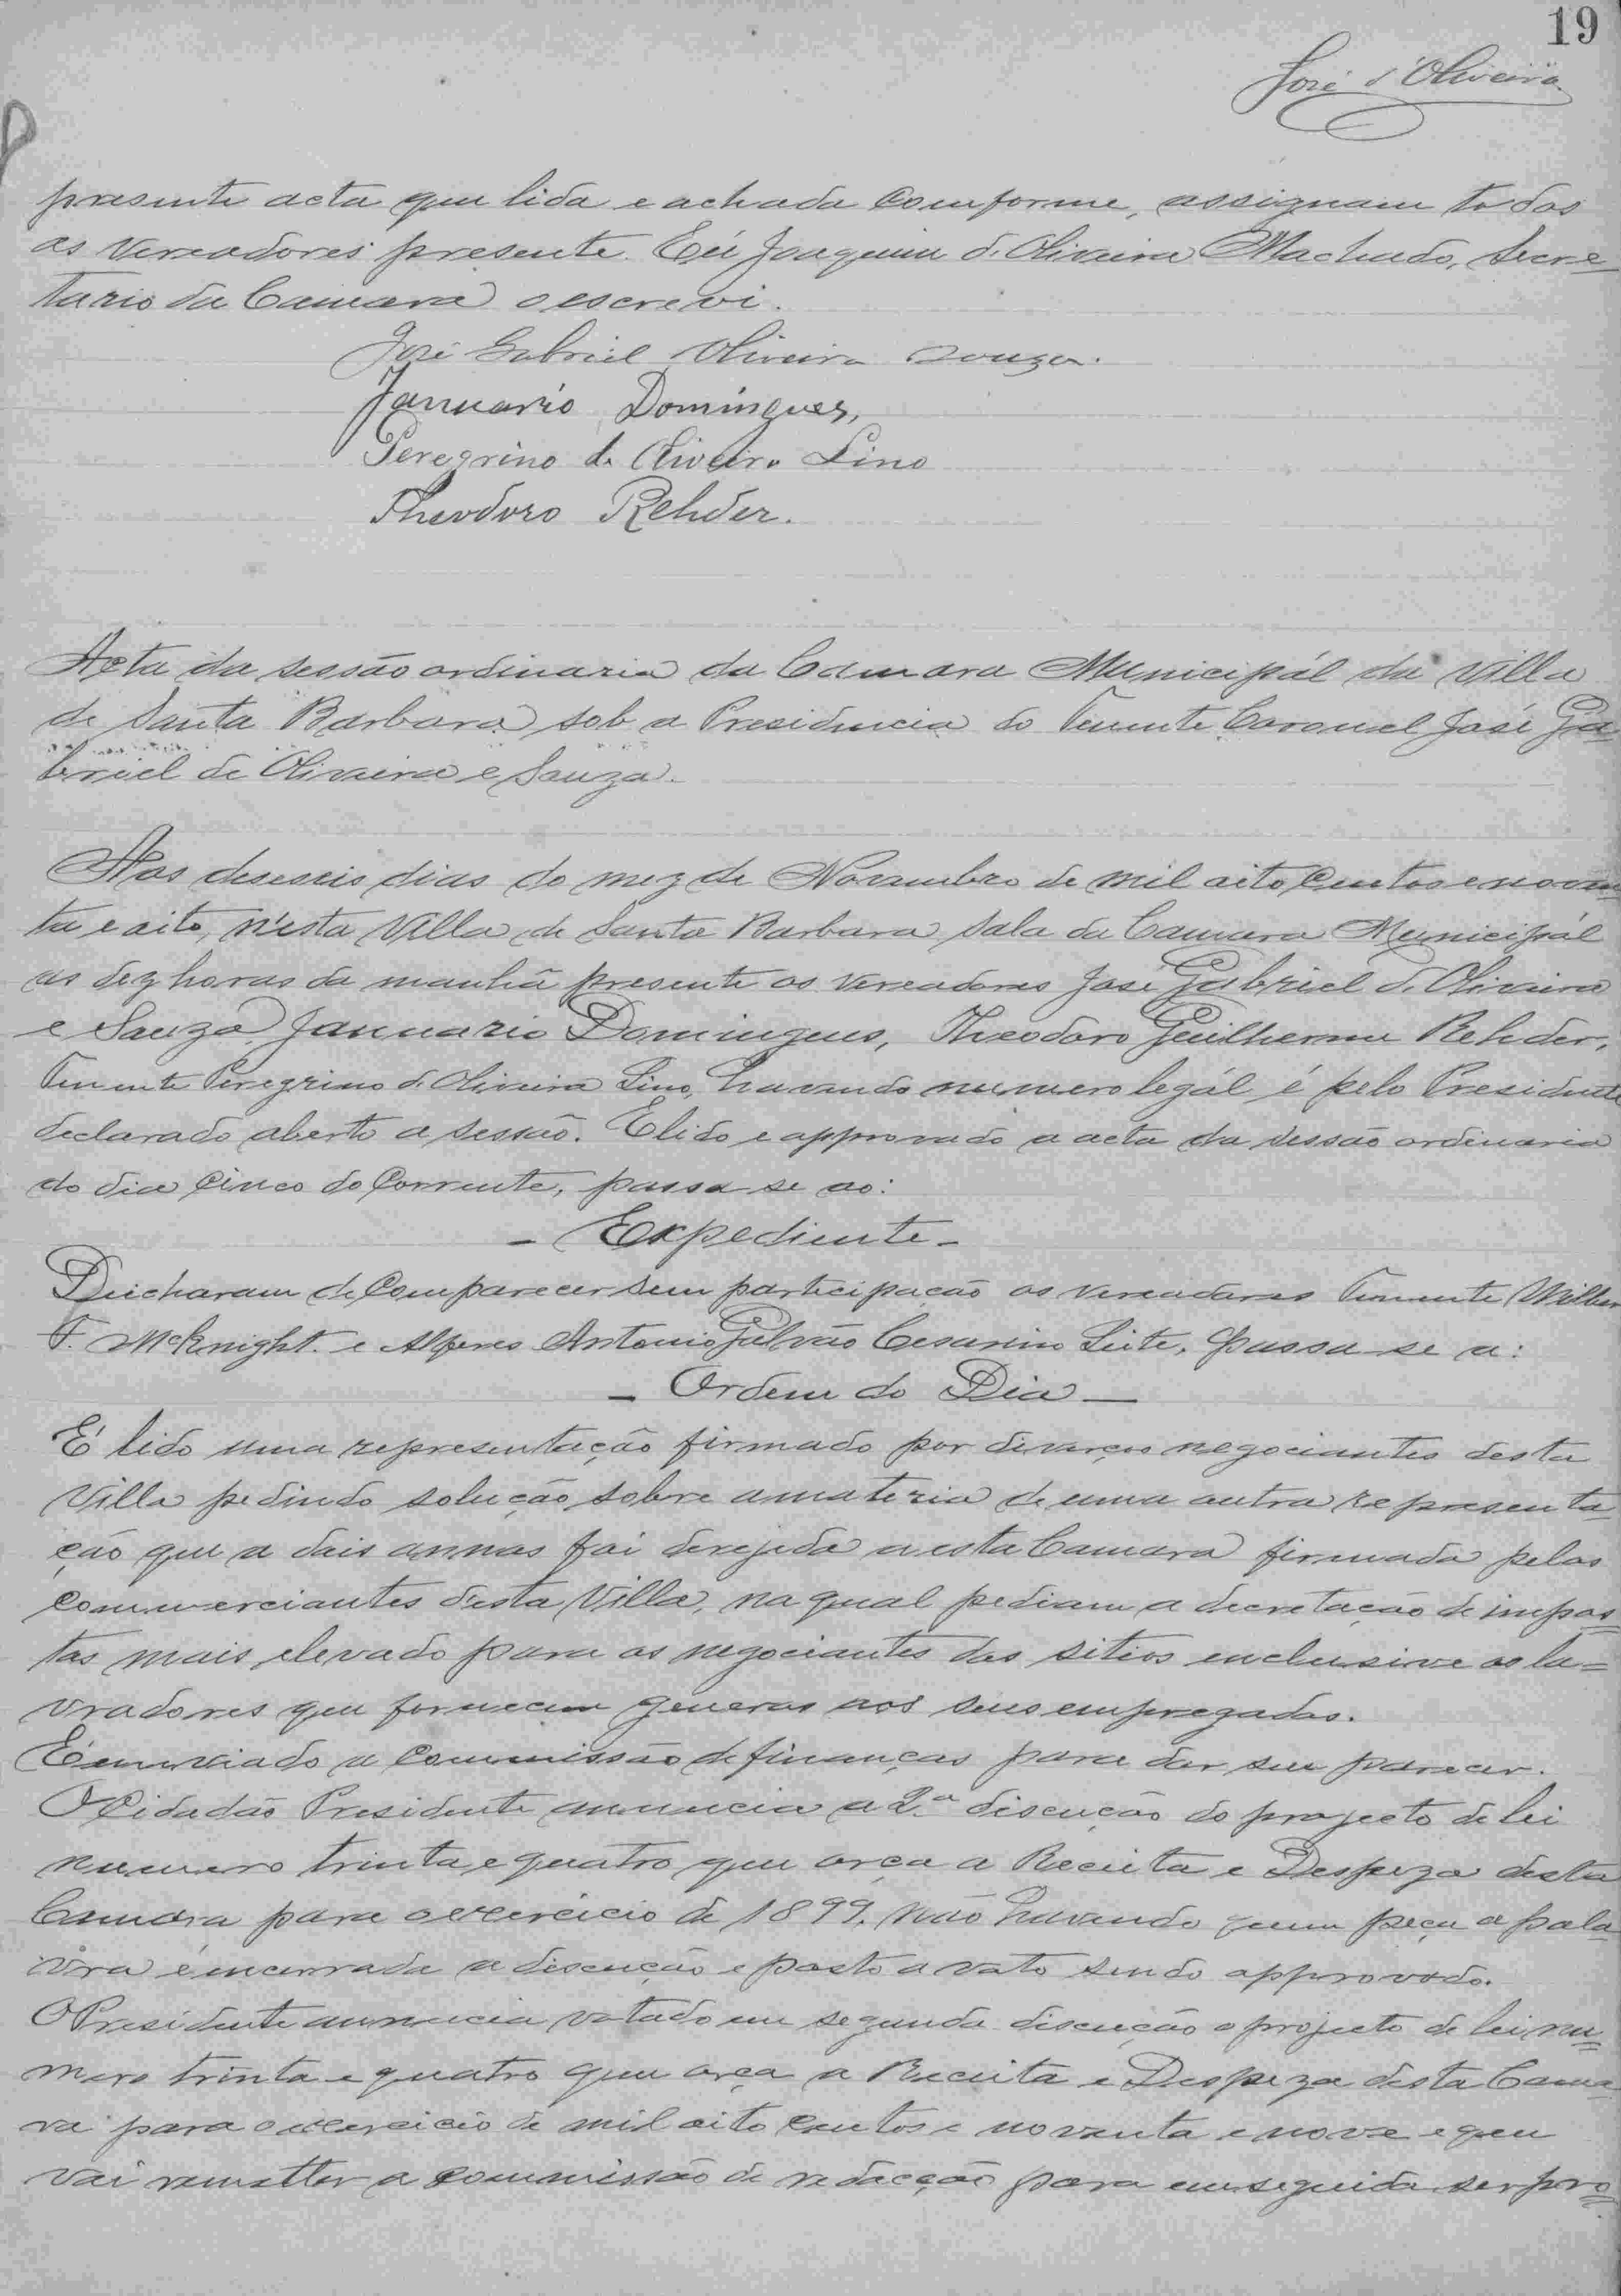 19
José d'Oliveira
presente acta que lida e achada comforme, assignam todos
os Vereadores presente. Eu Joaquim d. Oliveira Machado, Secre=
tario da Camara o escrevi.
José Gabriel Oliveira Souza.
Januario Domingues,
Peregrino d. Oliveira Lino
Theodoro Rehder.
Acta da sessão ordinaria da Camara Municipál da Villa
de Santa Barbara sob a Presidencia do Tenente Coronel José Ga=
briel de Oliveira e Souza.
Aos deseseis dias do mez de Novembro de mil oito centos e noven
ta e oito, n'esta Villa de Santa Barbara Sala da Camara Municipál
as dez horas da manhã presente os Vereadores José Gabriel d. Oliveira
e Souza, Januario Domingues, Theodoro Guilherme Rehder,
Tenente Peregrino d. Oliveira Lino, havendo numero legál é pelo Presidente
declarado aberto a sessão. É lido e approvado a acta da sessão ordinaria
do dia cinco do Corrente, passa-se ao:
- Expediente -
Deicharam de Comparecer sem participação os vereadores Tenente
F. McKnight. e Alferes Antonio Galvão Cesarino Leite, passa-se a:
- Ordem do Dia -
É lido uma representação firmado por diverços negociantes desta
Villa pedindo solução sobre a materia de uma outra representa
ção que a dois annos foi derejida a esta Camara firmada pelos
Commerciantes desta Villa, na qual pediam a decretação de impos=
tos mais elevado para os negociantes dos sitios enclusive os la=
vradores que fornecem generos aos seus empregados.
É enviado a Commissão de finanças para dar seu parecer.
O Cidadão Presidente annuncia a 2.ª discução do projecto de lei
numero trinta e quatro que orça a Receita e Despeza desta
Camara para o exercicio de 1899. não havendo quem peça a pala
vra é encerrada a discução e posto a voto sendo approvodo.
O Presidente annuncia votado em segunda discução o projecto de lei nu=
mero trinta e quatro que orça a Receita e Despeza desta Cama
ra para o exercicio de mil oito centos e noventa e nove e que
vai remetter a commissão de redacção para em seguida ser pro=